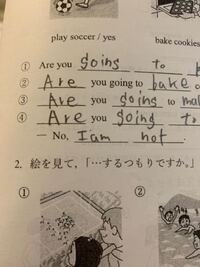 play soccer / yes bake cookies
① Are you going to
② Are you going to bake
③ Are you going to
④ Are you going to
— No, I am not.
2. 絵を見て,「…するつもりですか。」
① ②